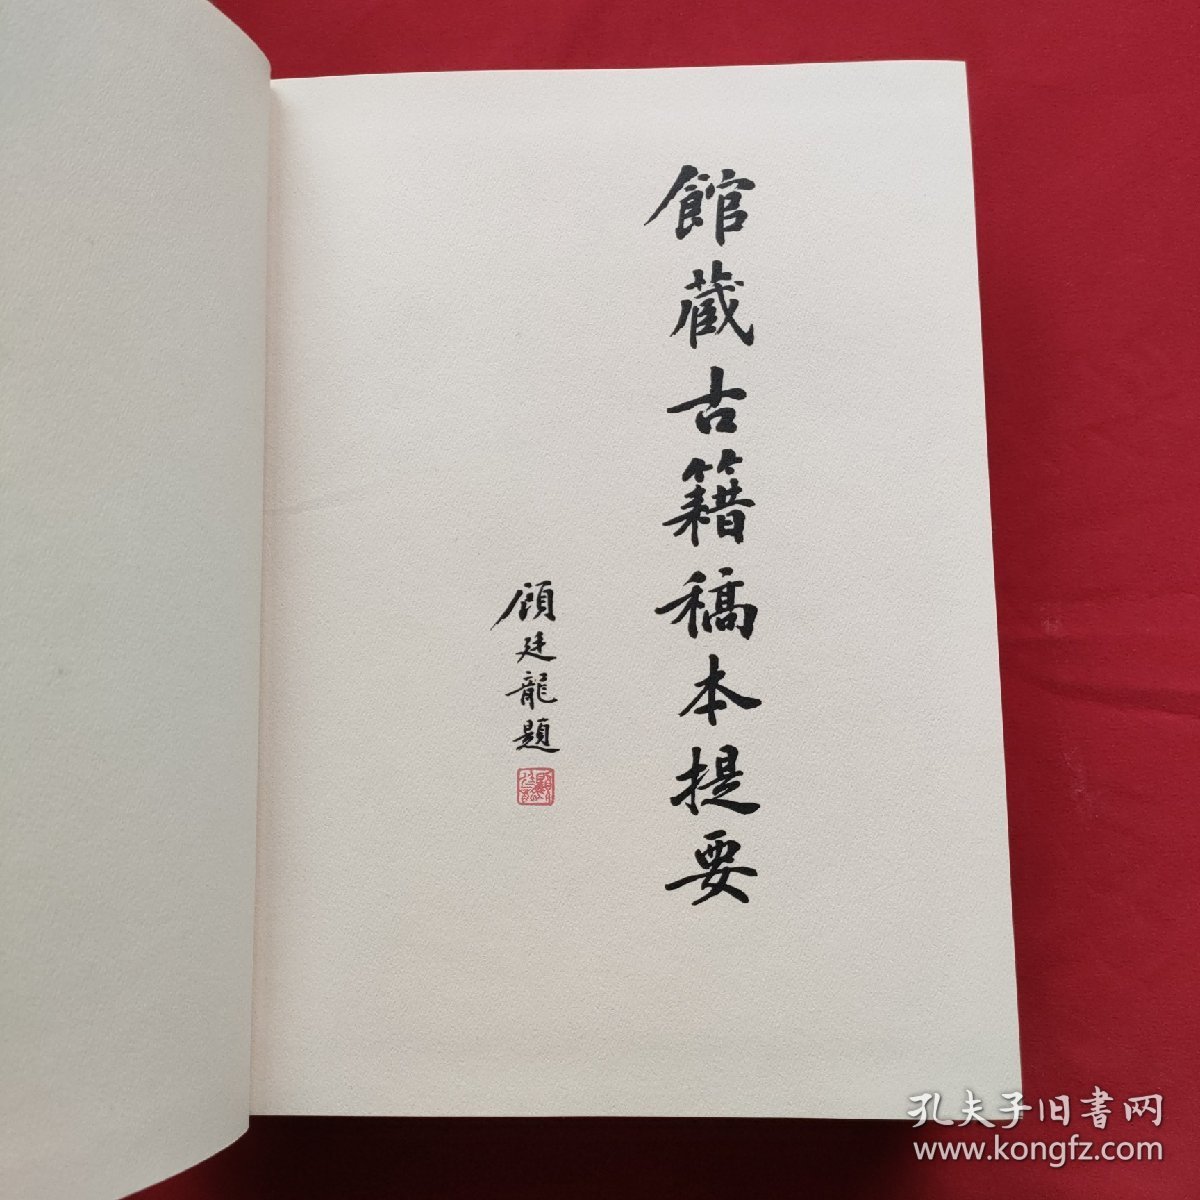 館藏古籍稿本提要
顧廷龍題
孔夫子旧書网
www.kongfz.com